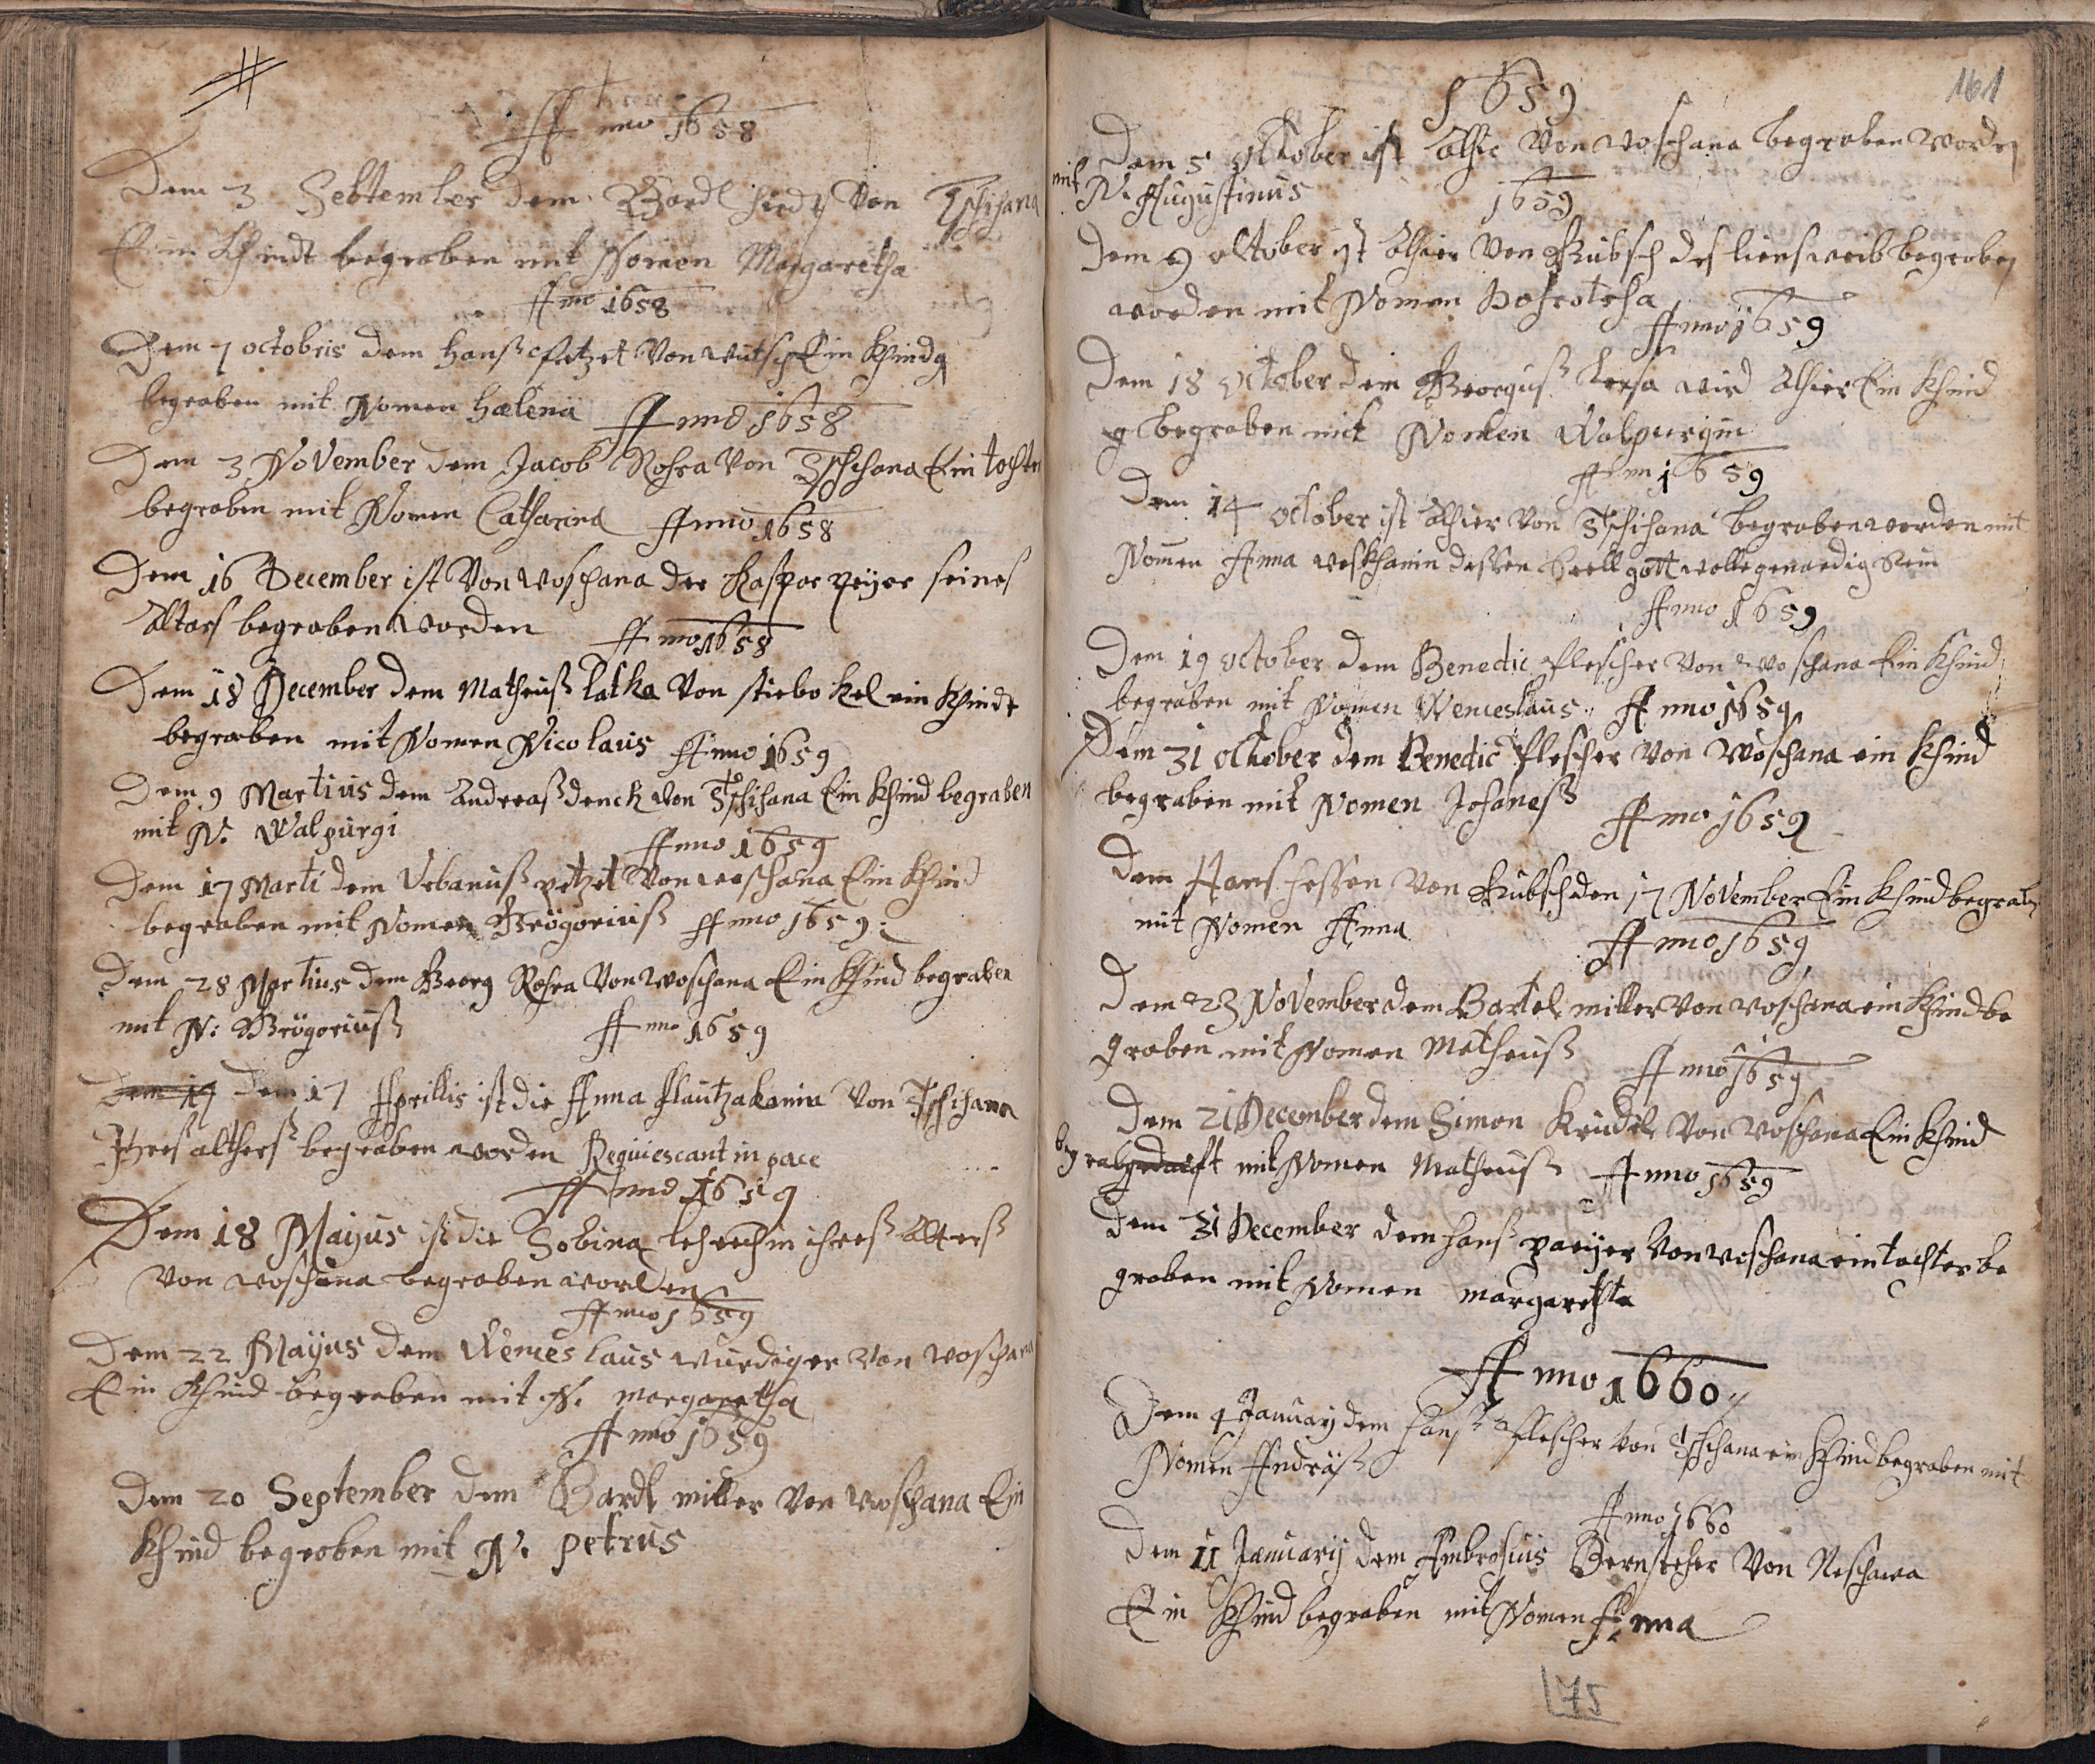 Anno 1658
Dem 3 Sebtember dem Bardl von Tschihana
Ein Khindt begraben mit Nomen Margaretha
Anno 1658
Dem 7 octobris dem Hanß petzet Von Wutsch Ein Khindt
begraben mit Nomen Hælena Anno 1658
Dem 3 November dem Jacob Rohra Von Tschihana Ein tochter
begraben mit Nomen Catharina Anno 1658
Dem 16 December ist Von Woschana der Kaspar peÿer seines
Alters begraben Worden Anno 1658
Dem 18 December dem Matheuß latka Von stiebo kel ein Khindt
begraben mit Nomen Nicolaus Anno 1659
Dem 9 Martius dem Andreaß denck von Tschihana Ein Khind begraben
mit N. Walpurgi
Anno 1659
Dem 17 Marti dem Urbanuß petzet Von woschana Ein Khind
begraben mit Nomen Grögoriuß Anno 1659
Dem 28 Martius dem Georg Rohra Von Woschana Ein Khind begraben
mit N: Grögoriuß Anno 1659
Dem 17 Dem 17 Aprillis ist die Anna flautzakanin Von Tschihana
Ihres althers begraben worden Requiescant in pace
Anno 1659
Dem 18 Maÿus ist die Sobina ihres Alters
Von Woschana begraben worden
Anno 1659
Dem 22 Maÿus dem Wenceslaus wurdiger von Woschana
Ein Khind begraben mit N. margaretha
Anno 1659
Dem 20 September dem Bardl miller Von Woschana Ein
Khind begraben mit N. petrus
161
1659
Dem 5 October ist Alhie Von Woschana begraben worden
mit N. Augustinus
1659
Dem 9 october ist Alhier Von Kubsch des weib begraben
worden mit Nomen
Anno 1659
Dem 18 October dem Georguß wird Alhier Ein Khind
begraben mit Nomen Walpurgin
Anno 1659
Dem 14 october ist Alhier Von Tschihana begraben worden mit
Nomen Anna dessen Seell gott wolle genaedig Sein
Anno 1659
Dem 19 october dem Benedic flescher Von Woschana Ein Khind
begraben mit Nomen Wenceslaus Anno 1659
Dem 31 october dem Benedic flescher Von Woschana ein Khind
begraben mit Nomen Johaneß
Anno 1659
Dem Hans hessen Von Kubsch den 17 November Ein Khind begraben
mit Nomen Anna
Anno 1659
Dem 23 November dem Bartel miller Von Woschana ein Khind be
graben mit Nomen Matheuß
Anno 1659
Dem 21 December dem Simon Von Woschana Ein Khind
begrab mit Nomen Matheuß Anno 1659
Dem 31 December dem Hanß paeÿer Von Woschana ein tochter be
graben mit Nomen margaretha
Anno 1660
Dem 4 Januarÿ dem Hanß flescher Von Tschihana ein Khind begraben mit
Nomen Andräß
Anno 1660
Dem 11 Januarÿ dem Ambrosius Bernstecher Von Neschawa
Ein Khind begraben mit Nomen Anna
175